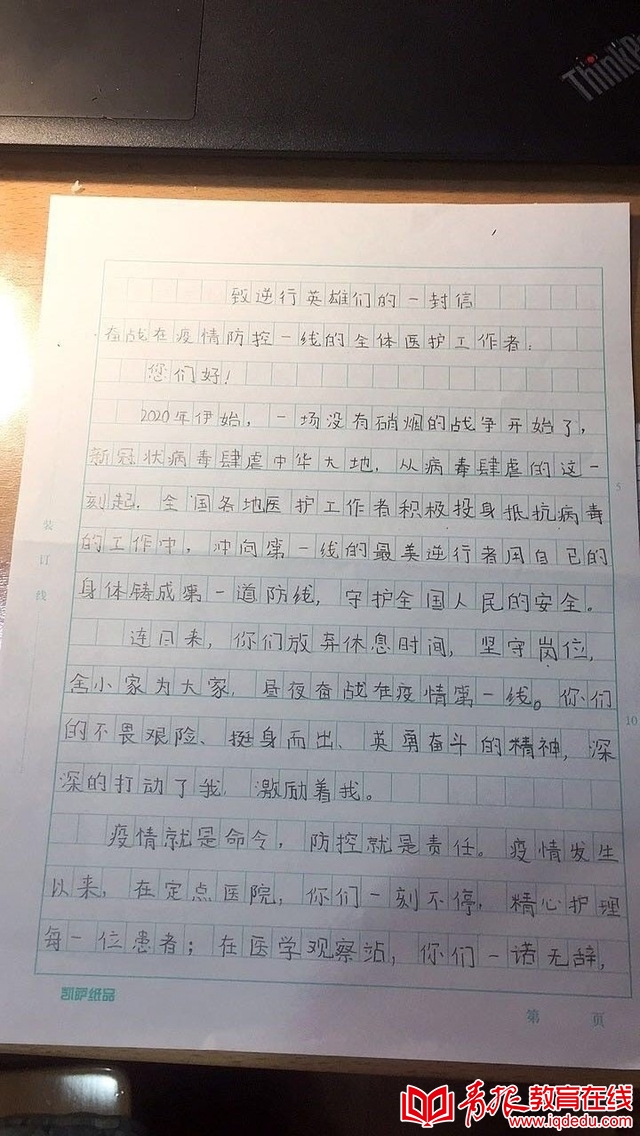 ThinkP
致逆行英雄们的一封信
奋战在疫情防控一线的全体医护工作者：
您们好！
2020年伊始，一场没有硝烟的战争开始了，
新冠状病毒肆虐中华大地，从病毒肆虐的这一
刻起，全国各地医护工作者积极投身抵抗病毒
的工作中，冲向第一线的最美逆行者用自己的
身体铸成第一道防线，守护全国人民的安全。
连日来，你们放弃休息时间，坚守岗位，
舍小家为大家，昼夜奋战在疫情第一线。你们
的不畏艰险、挺身而出、英勇奋斗的精神，深
深的打动了我，激励着我。
疫情就是命令，防控就是责任。疫情发生
以来，在定点医院，你们一刻不停，精心护理
每一位患者；在医学观察站，你们一诺无辞，
装订线
5
10
凯萨纸品
第 页
青报教育在线
www.iqdedu.com